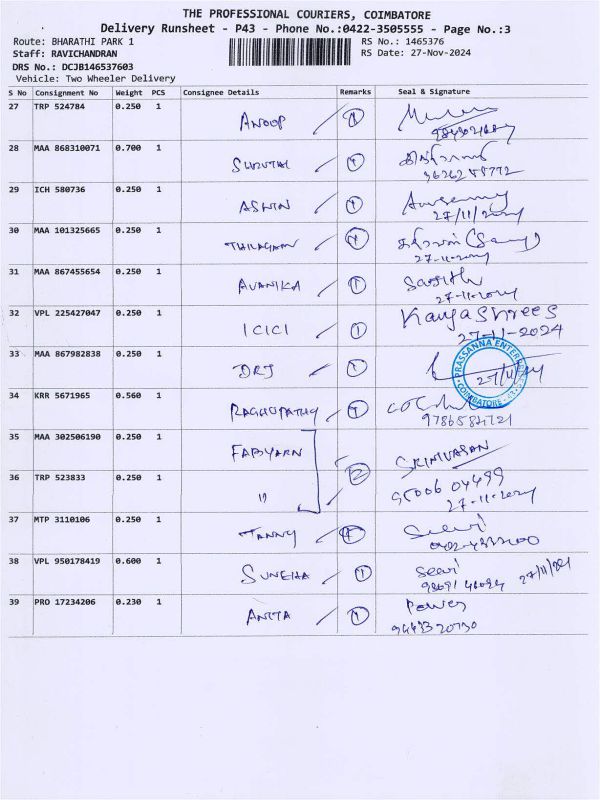 THE PROFESSIONAL COURIERS, COIMBATORE
Delivery Runsheet - P43 - Phone No.:0422-3505555 - Page No.:3
Route: BHARATHI PARK 1 RS No.: 1465376
Staff: RAVICHANDRAN RS Date: 27-Nov-2024
DRS No.: DCJB146537603
Vehicle: Two Wheeler Delivery
S No Consignment No Weight PCS Consignee Details Remarks Seal & Signature
27 TRP 524784 0.250 1 ANOOP 1
28 MAA 868310071 0.700 1 1
29 ICH 580736 0.250 1 ASWIN 1
27/11/2024
30 MAA 101325665 0.250 1 1
27-11-2024
31 MAA 867455654 0.250 1 AVANIKA 1
27-11-2024
32 VPL 225427047 0.250 1 ICICI 1 Kavya Shree S
27-11-2024
33 MAA 867982838 0.250 1 1 PRASSANNA ENTER
COIMBATORE
27/11/24
34 KRR 5671965 0.560 1 RAGHUPATHY 1
35 MAA 302506190 0.250 1 FABYARN 2 SRINIVASAN
36 TRP 523833 0.250 1 " 95006 04499
27-11-2024
37 MTP 3110106 0.250 1 1
38 VPL 950178419 0.600 1 SUNEHA 1
27/11/2024
39 PRO 17234206 0.230 1 ANITA 1